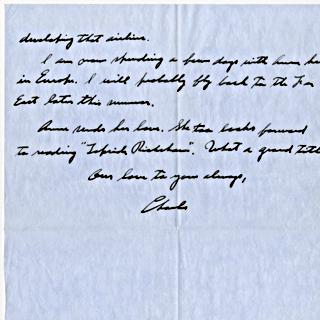 developing that airline.
I am now spending a few days with Anne here
in Europe. I will probably fly back to the Far
East later this summer.
Anne sends her love. She too looks forward
to reading " ". What a grand title
Our love to you always,
Charles